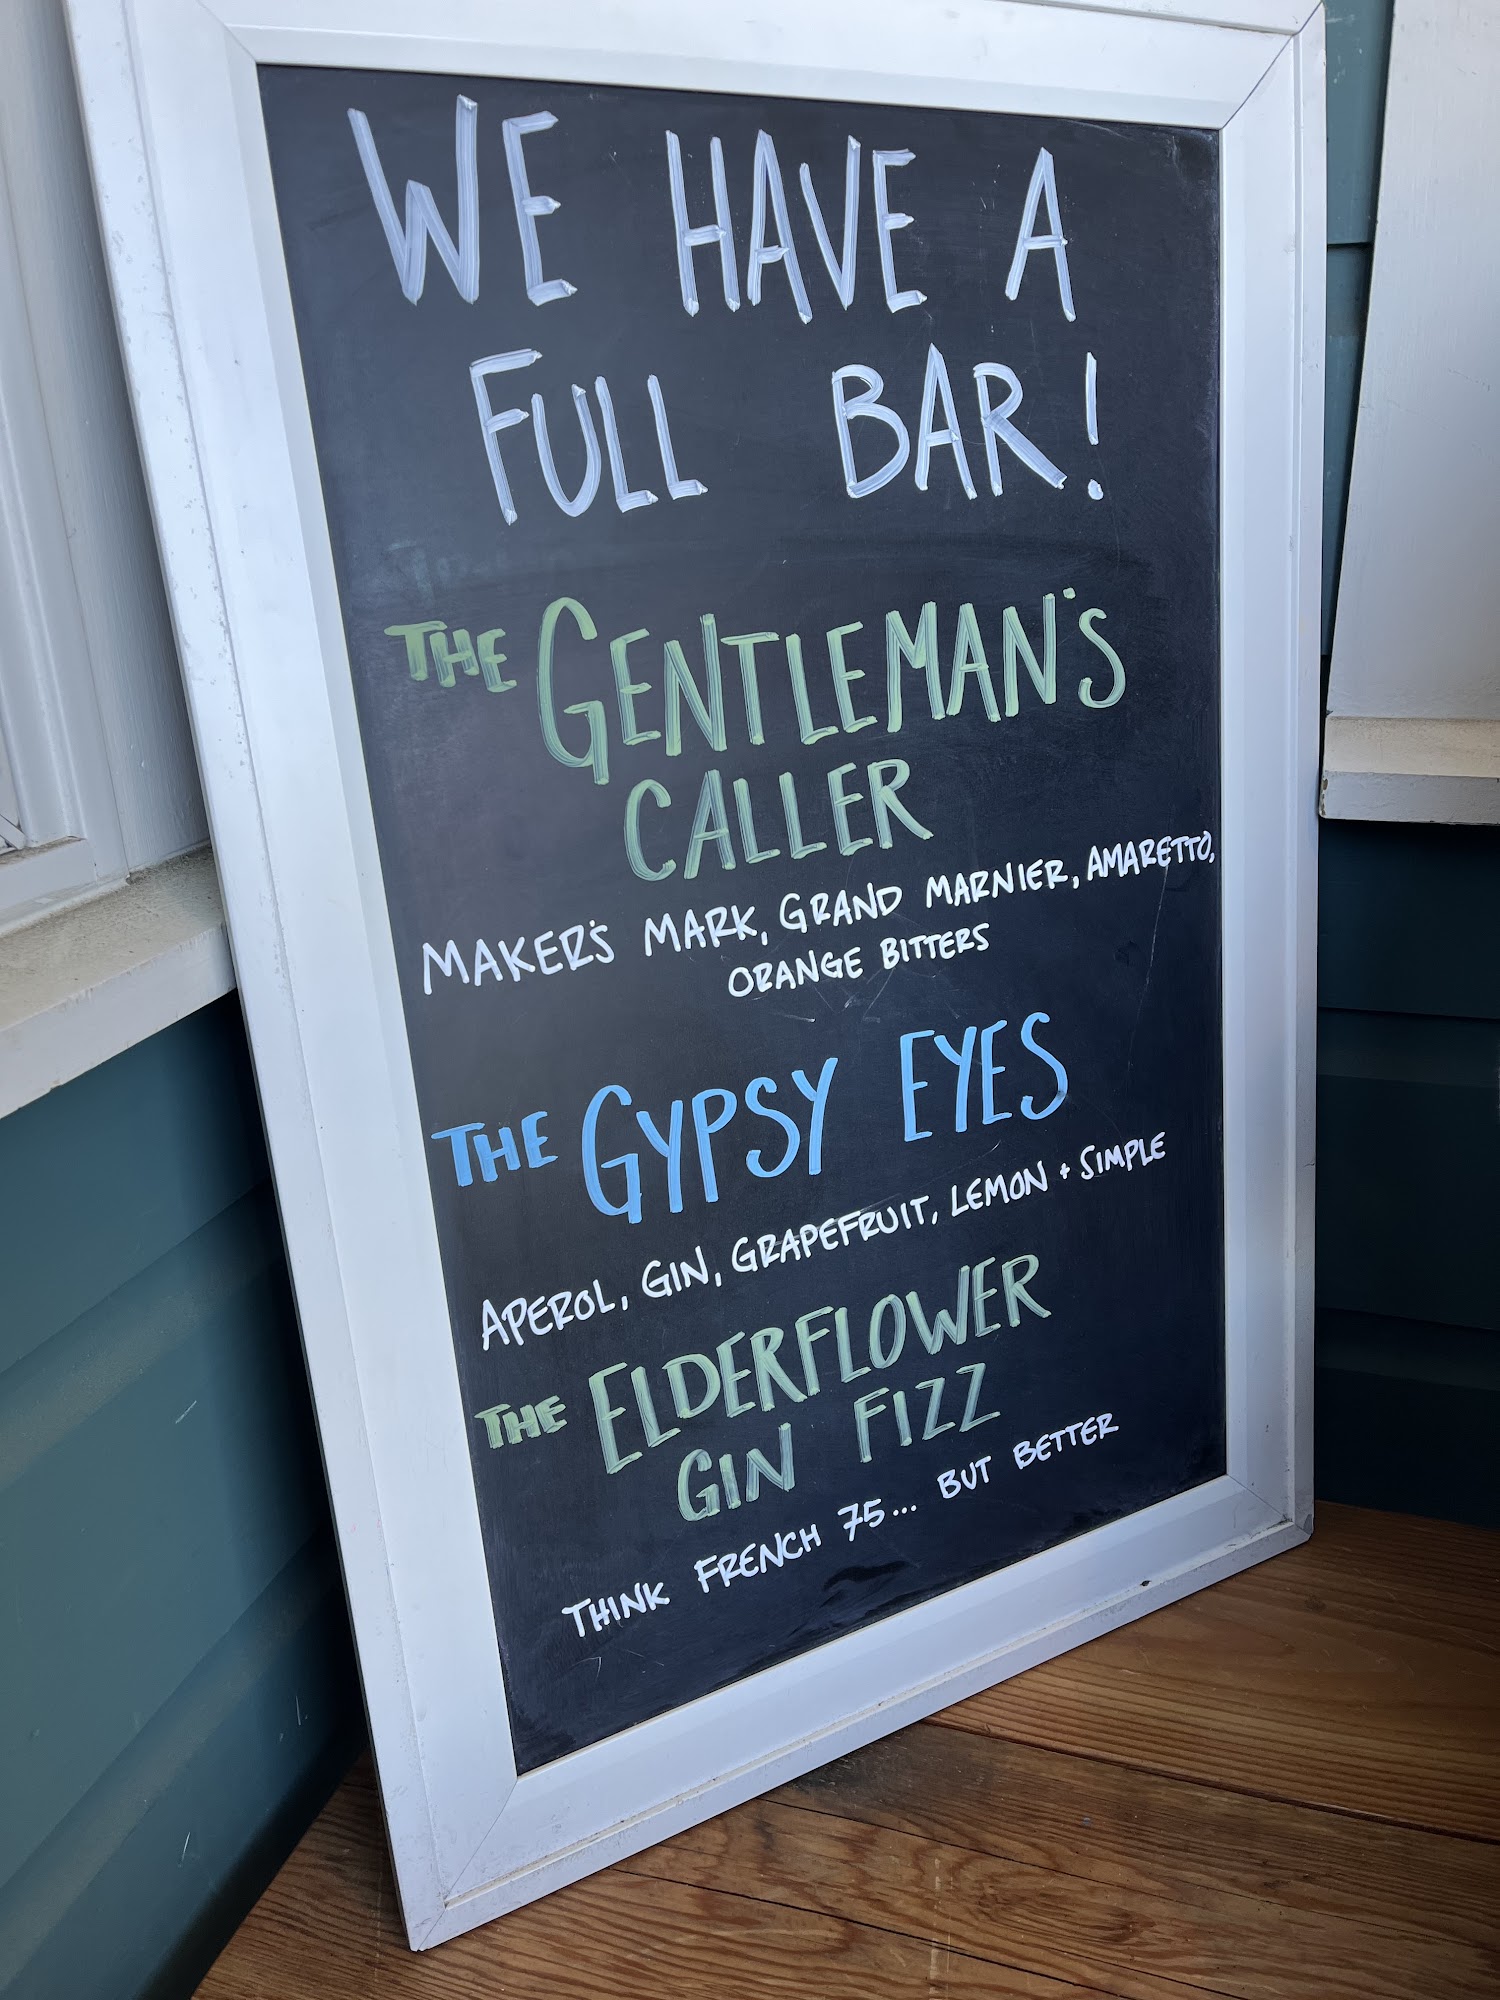 WE HAVE A
FULL BAR!
THE GENTLEMAN'S
CALLER
MAKER'S MARK, GRAND MARNIER, AMARETTO,
ORANGE BITTERS
THE GYPSY EYES
APEROL, GIN, GRAPEFRUIT, LEMON + SIMPLE
THE ELDERFLOWER
GIN FIZZ
THINK FRENCH 75... BUT BETTER